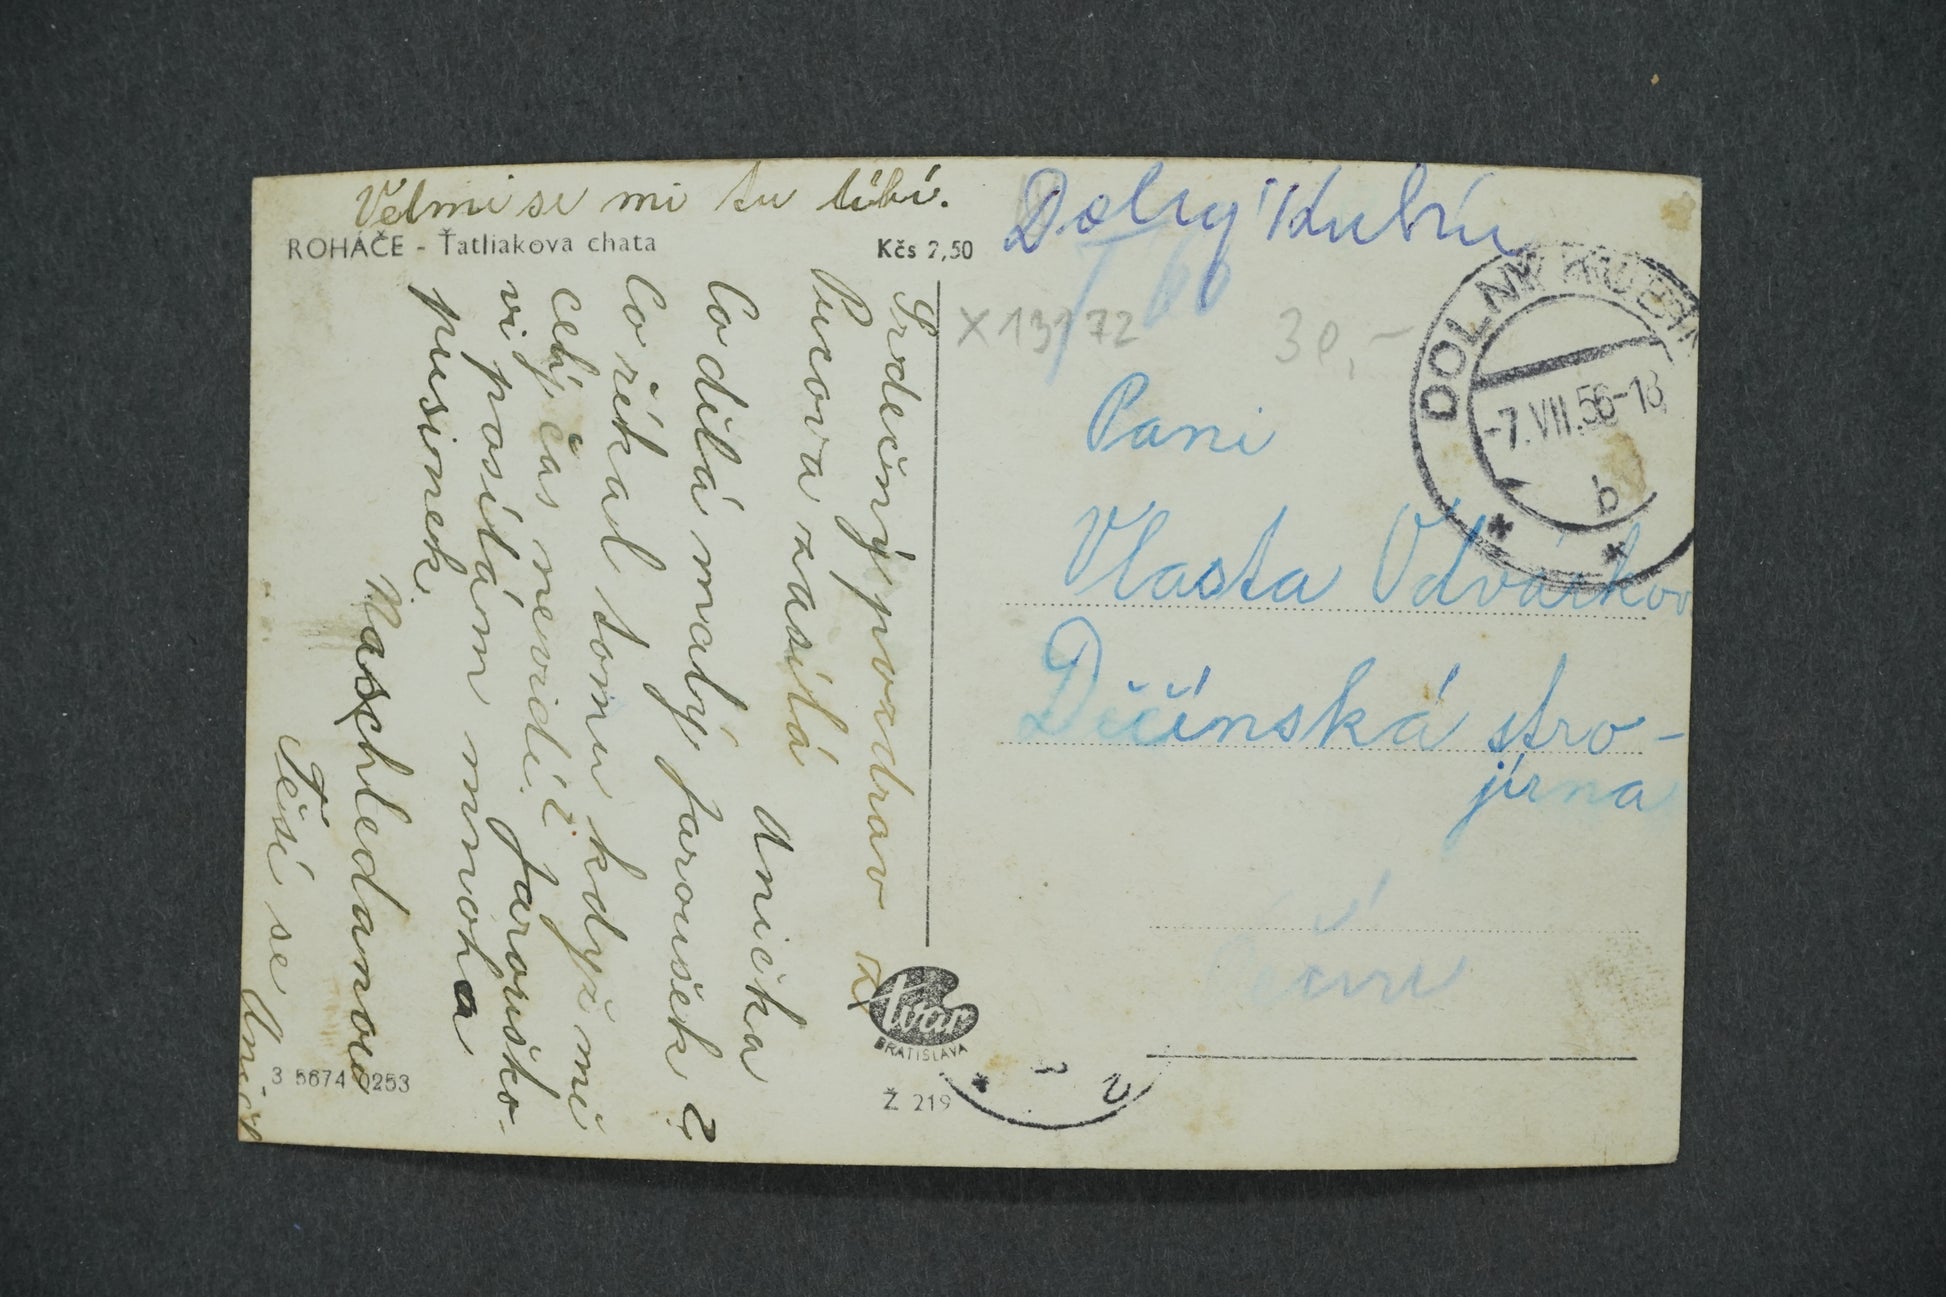 Velmi se mi tu líbí.
ROHÁČE - Ťatliakova chata
Kčs 2,50
Srdečný pozdrav z
Pucova zasílá
Anička
Co dělá malý Jaroušek?
Co říkal tomu když mi
celý čas nevidí? Jarouško-
vi posílám mnoha
pusionek.
Naschledanou
Těší se
3 5674 0253
tvar
BRATISLAVA
Ž 219
Dolný Kubín
T 60
X 131 72
30,-
DOLNÝ KUBÍN
-7.VII.56-18
b
Pani
Vlasta Odvárkov
Děčínská stro-
jírna